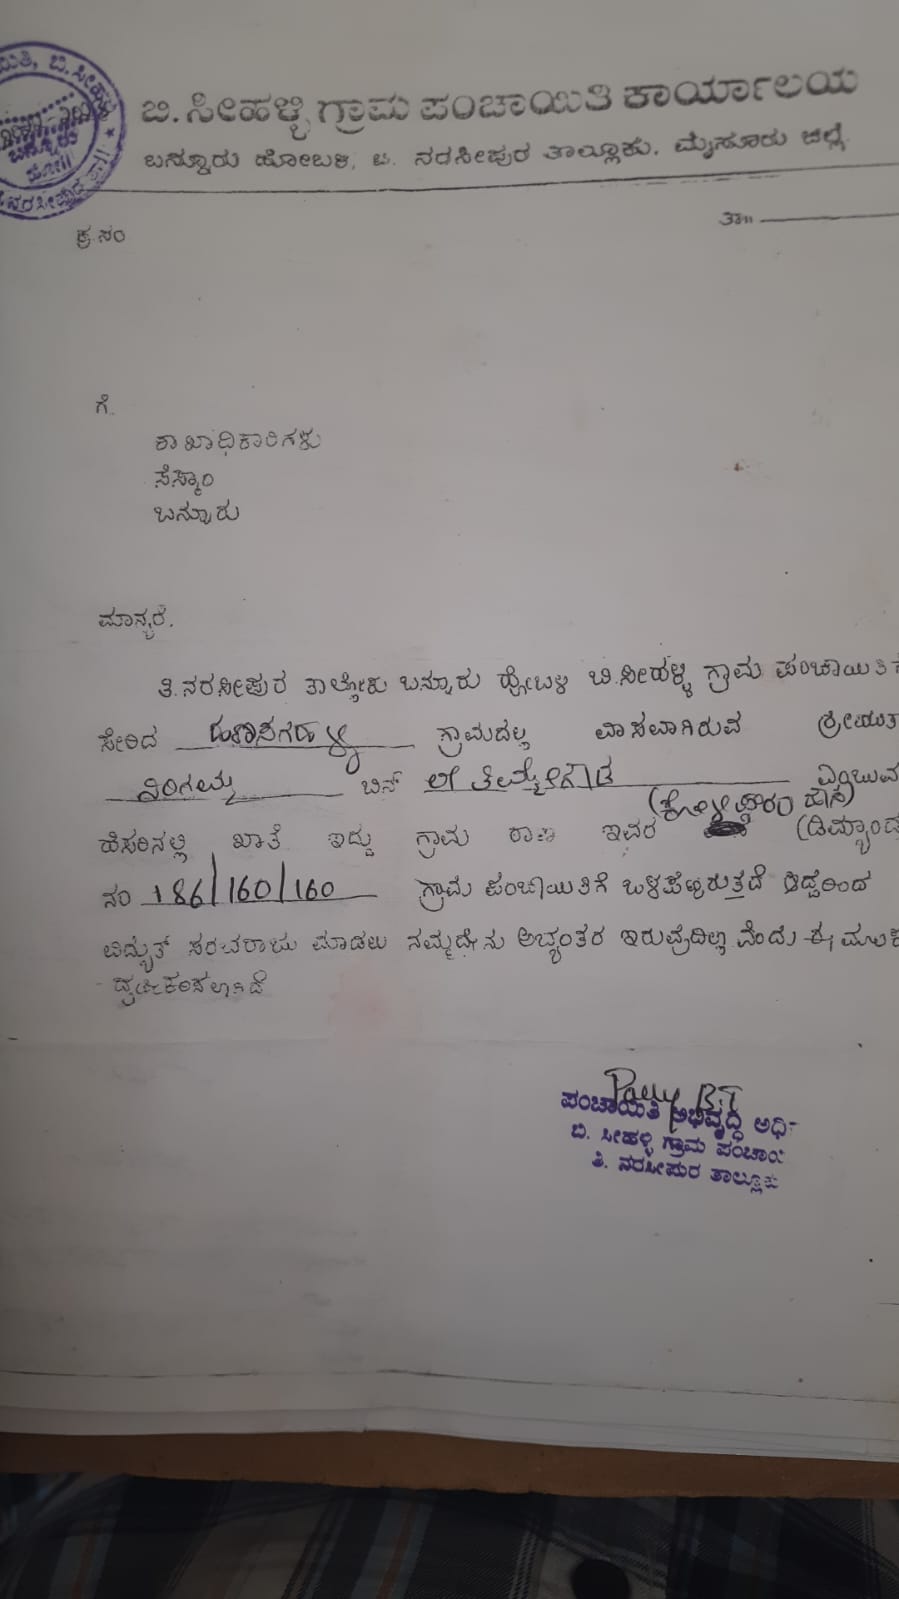 ಬಿ. ಸೀಹಳ್ಳಿ ಗ್ರಾಮ ಪಂಚಾಯಿತಿ ಕಾರ್ಯಾಲಯ
ಬನ್ನೂರು ಹೋಬಳಿ, ಟಿ. ನರಸೀಪುರ ತಾಲ್ಲೂಕು. ಮೈಸೂರು ಜಿಲ್ಲೆ.
ಕ್ರ.ಸಂ
ತಾ॥
ಗೆ.
ಶಾಖಾಧಿಕಾರಿಗಳು
ಸೆಸ್ಕಾಂ
ಬನ್ನೂರು
ಮಾನ್ಯರೆ.
ತಿ.ನರಸೀಪುರ ತಾಲ್ಲೋಕು ಬನ್ನೂರು ಹೋಬಳಿ ಬಿ.ಸೀಹಳ್ಳಿ ಗ್ರಾಮ ಪಂಚಾಯಿತಿ
ಸೇರಿದ ಗ್ರಾಮದಲ್ಲಿ ವಾಸವಾಗಿರುವ ಶ್ರೀಯುತ
ನಿಂಗಮ್ಮ ಬಿನ್ ಲೇ ತಿಮ್ಮೇಗೌಡ ಎಂಬುವ
ಹೆಸರಿನಲ್ಲಿ ಖಾತೆ ಇದ್ದು ಗ್ರಾಮ ಠಾಣ ಇವರ (ಡಿಮ್ಯಾಂಡ
ನಂ 186/160/160 ಗ್ರಾಮ ಪಂಚಾಯಿತಿಗೆ ಒಳಪಟ್ಟಿರುತ್ತದೆ ಆದ್ದರಿಂದ
ವಿದ್ಯುತ್ ಸರಬರಾಜು ಮಾಡಲು ನಮ್ಮದೇನು ಅಭ್ಯಂತರ ಇರುವುದಿಲ್ಲಾ ವೆಂದು ಈ ಮೂಲಕ
ದೃಢೀಕರಿಸಲಾಗಿದೆ
ಪಂಚಾಯಿತಿ ಅಭಿವೃದ್ಧಿ ಅಧಿ
ಬಿ. ಸೀಹಳ್ಳಿ ಗ್ರಾಮ ಪಂಚಾಯಿ
ತಿ. ನರಸೀಪುರ ತಾಲ್ಲೂಕು